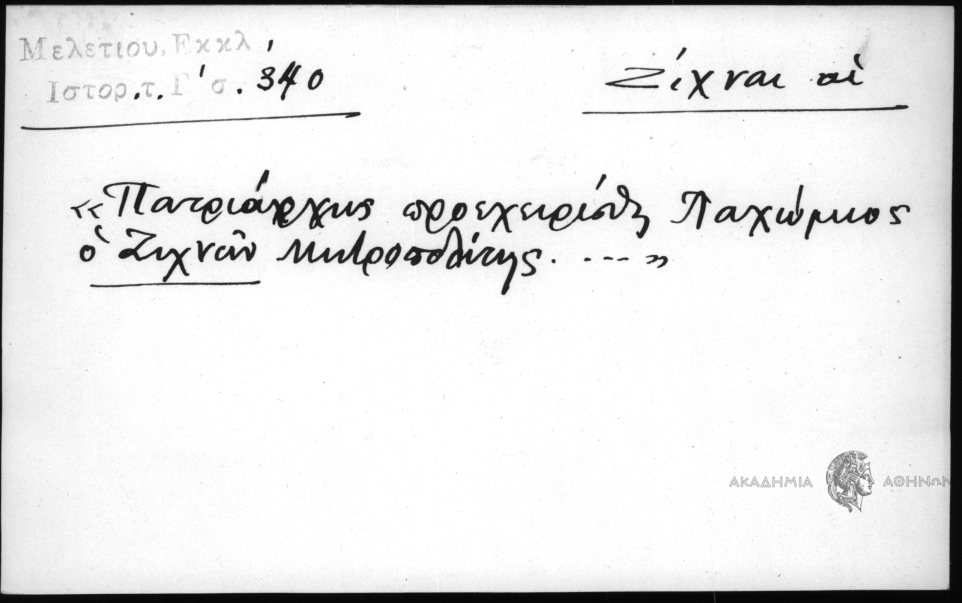 Μελετιου, Εκκλ
Ιστορ.τ. Γ' σ. 340
Ζίχναι αἱ
«Πατριάρχης προεχειρίσθη Παχώμιος
ὁ Ζιχνῶν Μητροπολίτης. ...»
ΑΚΑΔΗΜΙΑ ΑΘΗΝΩΝ